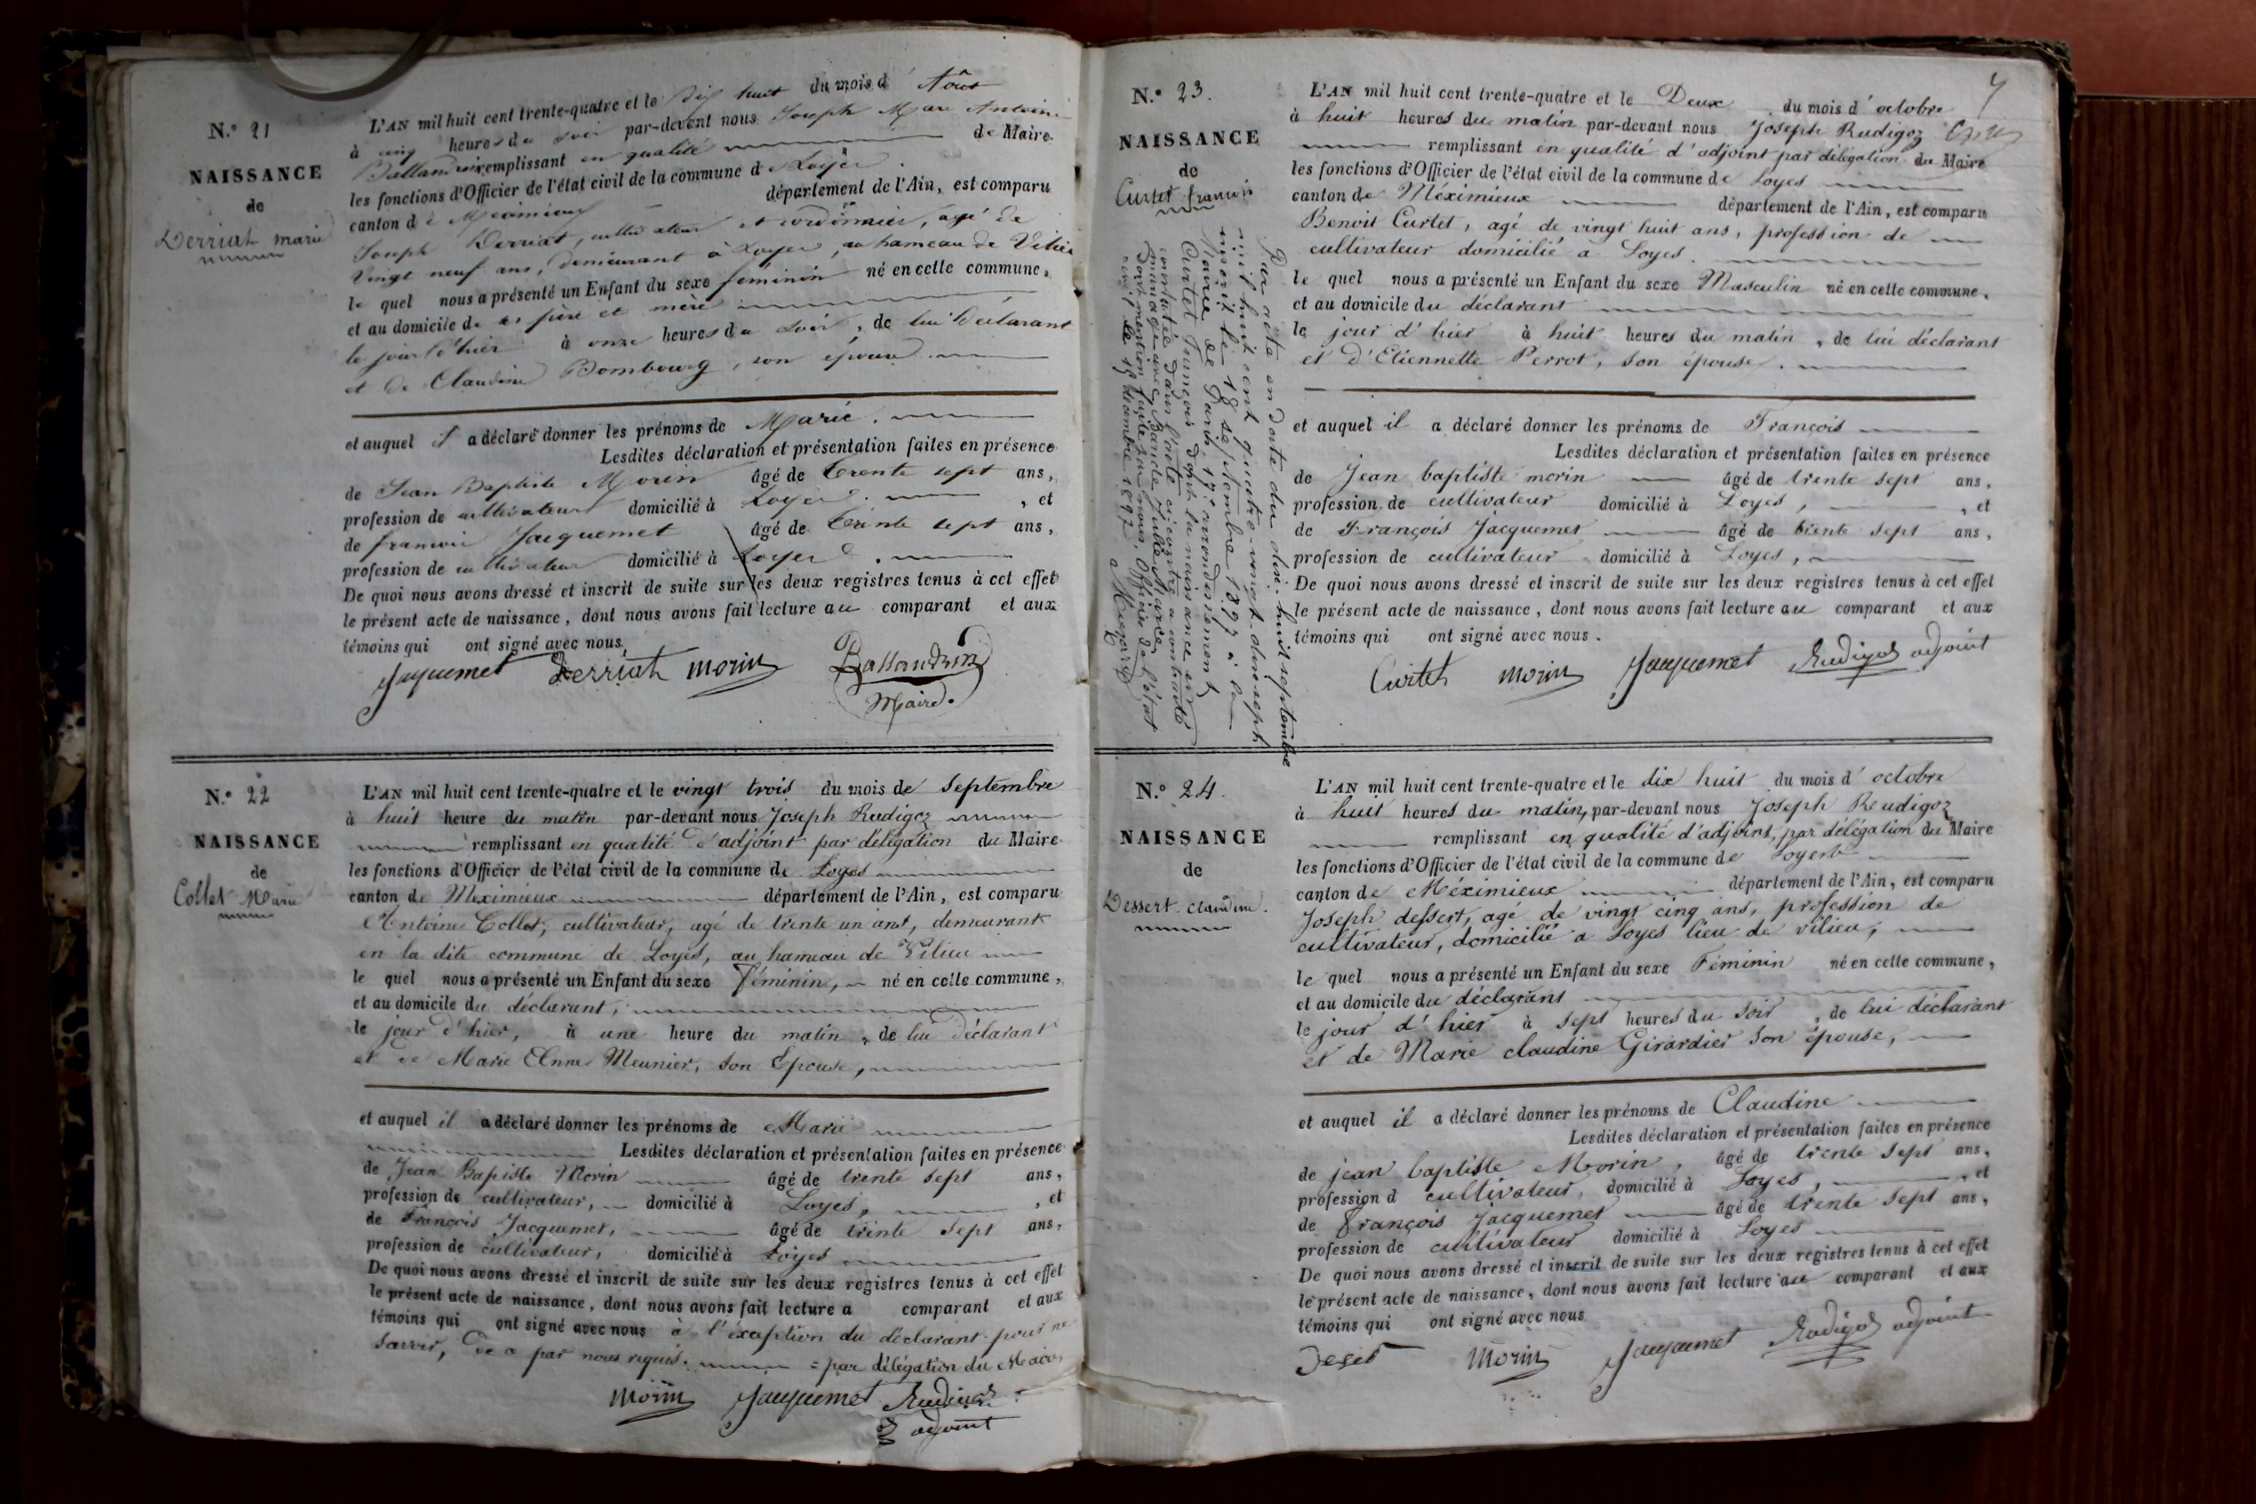 N.° 21
NAISSANCE
de
Derriat marie
L'AN mil huit cent trente-quatre et le dix huit du mois d' Août
à cinq heures du soir par-devant nous Joseph Marc Antoine
Ballandrin remplissant en qualité de Maire
les fonctions d'Officier de l'état civil de la commune de Loyes
canton de Meximieux département de l'Ain, est comparu
Joseph Derriat, cultivateur et cordonnier, agé de
vingt neuf ans, demeurant à Loyes, au hameau de Vilieu
le quel nous a présenté un Enfant du sexe féminin né en cette commune,
et au domicile de ses père et mère
le jour d'hier à onze heures du soir, de lui déclarant
et de Claudine Bombourg, son épouse.
et auquel il a déclaré donner les prénoms de Marie.
Lesdites déclaration et présentation faites en présence
de Jean Baptiste Morin âgé de trente sept ans,
profession de cultivateur domicilié à Loyes, et
de francois Jacquemet âgé de trente sept ans,
profession de cultivateur domicilié à Loyes.
De quoi nous avons dressé et inscrit de suite sur les deux registres tenus à cet effet
le présent acte de naissance, dont nous avons fait lecture au comparant et aux
témoins qui ont signé avec nous,
Jaquemet Derriat morin Ballandrin
Maire.
N.° 22
NAISSANCE
de
Collet Marie
L'AN mil huit cent trente-quatre et le vingt trois du mois de Septembre
à huit heure du matin par-devant nous Joseph Rudigoz
remplissant en qualité d'adjoint par délégation du Maire
les fonctions d'Officier de l'état civil de la commune de Loyes
canton de Meximieux département de l'Ain, est comparu
Antoine Collet, cultivateur, agé de trente un ans, demeurant
en la dite commune de Loyes, au hameau de Vilieu
le quel nous a présenté un Enfant du sexe féminin, né en cette commune,
et au domicile du déclarant,
le jour d'hier, à une heure du matin, de lui déclarant
et de Marie Anne Meunier, son Epouse,
et auquel il a déclaré donner les prénoms de Marie
Lesdites déclaration et présentation faites en présence
de Jean Baptiste Morin âgé de trente sept ans,
profession de cultivateur, domicilié à Loyes, et
de François Jacquemet, âgé de trente sept ans,
profession de cultivateur, domicilié à Loyes
De quoi nous avons dressé et inscrit de suite sur les deux registres tenus à cet effet
le présent acte de naissance, dont nous avons fait lecture a comparant et aux
témoins qui ont signé avec nous à l'exception du déclarant pour ne
savoir, de a par nous requis. = par délégation du Maire
morin Jauquemet Rudigoz
adjoint
4
N.° 23.
NAISSANCE
de
Curtet francois
Par acte en date du dix-huit septembre
mil huit cent quatre-vingt-dix-sept
inscrit le 18 septembre 1897 à la
Mairie de Paris, 17e arrondissement,
Curtet François dont la naissance est
constatée dans l'acte ci-contre a contracté
mariage avec
Dont mention faite par nous, Officier de l'état
civil le 18 1897
L'AN mil huit cent trente-quatre et le Deux du mois d' octobre
à huit heures du matin par-devant nous Joseph Rudigoz
remplissant en qualité d'adjoint par délégation du Maire
les fonctions d'Officier de l'état civil de la commune de Loyes
canton de Méximieux département de l'Ain, est comparu
Benoit Curtet, agé de vingt huit ans, profession de
cultivateur domicilié a Loyes.
le quel nous a présenté un Enfant du sexe Masculin né en cette commune,
et au domicile du déclarant
le jour d'hier à huit heures du matin, de lui déclarant
et d'Etiennette Perrot, son épouse.
et auquel il a déclaré donner les prénoms de François
Lesdites déclaration et présentation faites en présence
de Jean baptiste morin âgé de trente sept ans,
profession de cultivateur domicilié à Loyes, et
de François Jacquemet âgé de trente sept ans,
profession de cultivateur domicilié à Loyes,
De quoi nous avons dressé et inscrit de suite sur les deux registres tenus à cet effet
le présent acte de naissance, dont nous avons fait lecture au comparant et aux
témoins qui ont signé avec nous.
Curtet morin Jauquemet Rudigoz adjoint
N.° 24.
NAISSANCE
de
Dessert claudine.
L'AN mil huit cent trente-quatre et le dix huit du mois d' octobre
à huit heures du matin, par-devant nous Joseph Rudigoz
remplissant en qualité d'adjoint, par délégation du Maire
les fonctions d'Officier de l'état civil de la commune de Loyes
canton de Méximieux département de l'Ain, est comparu
Joseph dessert, agé de vingt cinq ans, profession de
cultivateur, domicilié a Loyes lieu de vilieu,
le quel nous a présenté un Enfant du sexe Féminin né en cette commune,
et au domicile du déclarant
le jour d'hier à sept heures du soir, de lui déclarant
et de Marie claudine Girardier son épouse,
et auquel il a déclaré donner les prénoms de Claudine
Lesdites déclaration et présentation faites en présence
de jean baptiste Morin, âgé de trente sept ans,
profession d cultivateur, domicilié à Loyes, et
de François Jacquemet âgé de trente sept ans,
profession de cultivateur domicilié à Loyes
De quoi nous avons dressé et inscrit de suite sur les deux registres tenus à cet effet
le présent acte de naissance, dont nous avons fait lecture au comparant et aux
témoins qui ont signé avec nous
Desert Morin Jauquemet Rudigoz adjoint